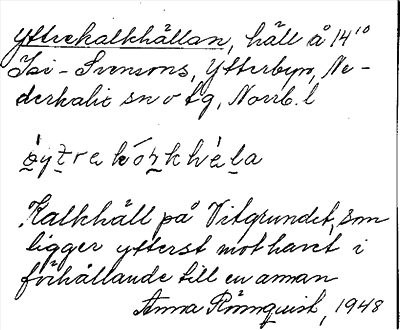 Yttrekalkhällan, häll å 14¹⁰
Isi-Svensons, Ytterbyn, Ne-
derkalix sn o tg, Norrb. l
Kalkhäll på Vitgrundet, som
ligger ytterst mot havet i
förhållande till en annan
Anna Rönnquist, 1948